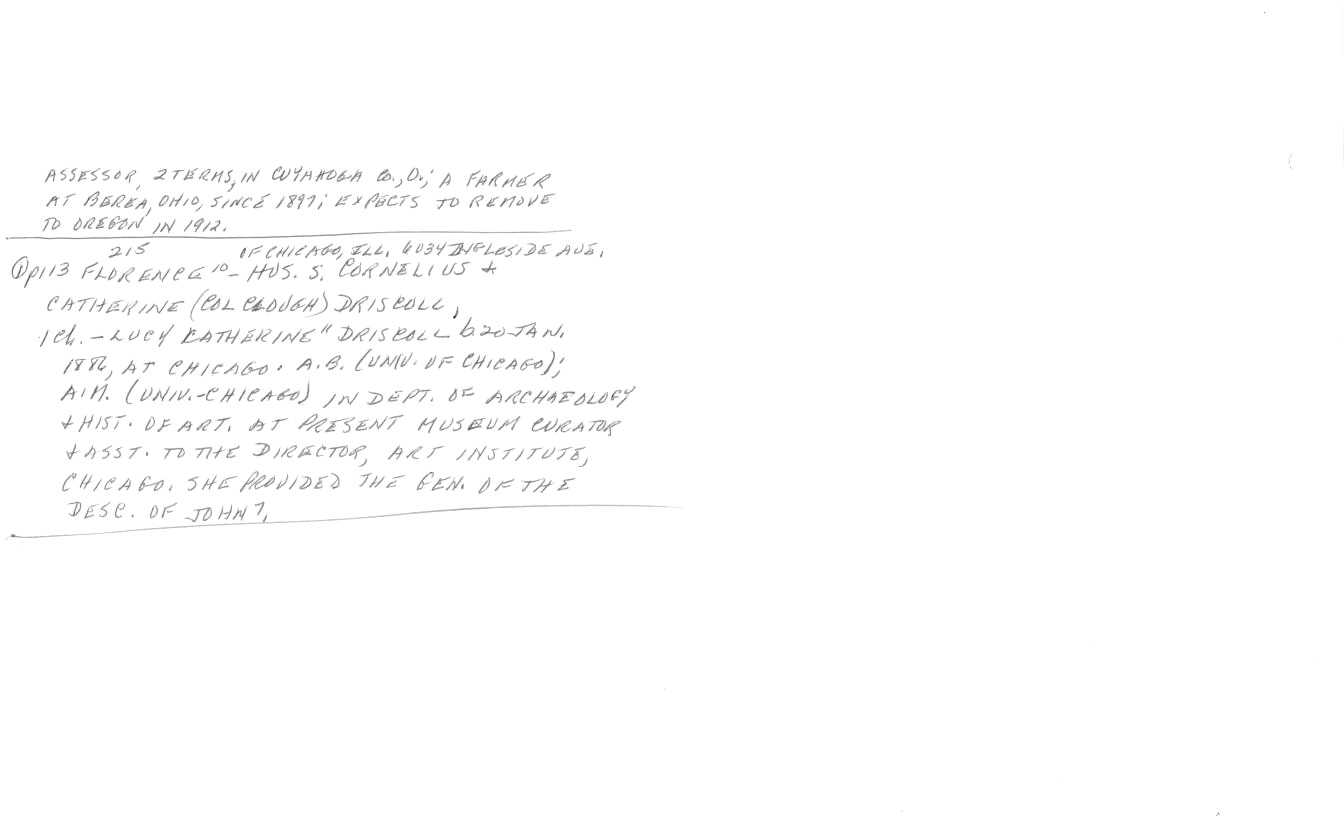 ASSESSOR, 2 TERMS, IN CUYAHOGA CO., O.; A FARMER
AT BEREA, OHIO, SINCE 1897; EXPECTS TO REMOVE
TO OREGON IN 1912.
215 OF CHICAGO, ILL. 6034 INGLESIDE AVE.
① p113 FLORENCE¹⁰ - HUS. S. CORNELIUS &
CATHERINE (COLCLOUGH) DRISCOLL,
1 ch. - LUCY CATHERINE¹¹ DRISCOLL b. 20 JAN.
1886, AT CHICAGO. A.B. (UNIV. OF CHICAGO);
A.M. (UNIV.-CHICAGO) IN DEPT. OF ARCHAEOLOGY
& HIST. OF ART. AT PRESENT MUSEUM CURATOR
& ASST. TO THE DIRECTOR, ART INSTITUTE,
CHICAGO. SHE PROVIDED THE GEN. OF THE
DESC. OF JOHN⁷.